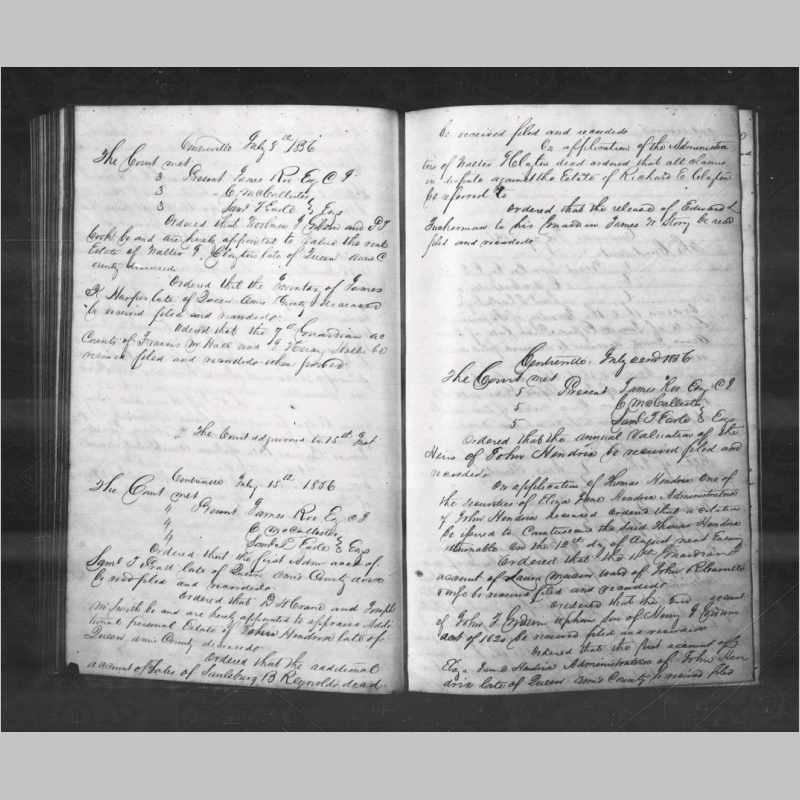 Centreville July 8th 1856
The Court met
3 Present James Roe Esq C J
3 C McCallister
3 Saml T Earle & Esqs
Ordered that and P T
be and are hereby appointed to value the real
Estate of Walter J. Clayton late of Queen Anns C
ounty deceased
Ordered that the Inventory of James
Harper late of Queen Anns County deceased
be received filed and recorded
Ordered that the 7th Guardian ac
County of Francis M Hall and J Henry be
received filed and recorded when passed
The Court adjourned to 15th Inst
Centreville July 15th 1856
The Court met
" Present James Roe Esq C J
" C McCallister
" Saml T Earle & Esqs
Ordered that the first Admr acct of
Saml T late of Queen Anns County decs
be recd filed and recorded
Ordered that D H Crane and Joseph
M Smith be and are hereby appointed to appraise Addi
tional personal Estate of John Hendrix late of
Queen Anns County deceased
Ordered that the additional
account of Sales of B Reynolds dead
be received filed and recorded
On application of the Administra
tors of Walter J Clayton dead ordered that all claims
in dispute against the Estate of Richard E Clayton
be referred to
Ordered that the release of Edward L
Tuckerman to his Guardian James W Story be recd
filed and recorded
Centreville July 22nd 1856
The Court met
5 Present James Roe Esq C J
5 C McCallister
5 Saml T Earle & Esqs
Ordered that the annual valuation of the
Heirs of John Hendrix be received filed and
recorded
On application of Thomas Hendrix one of
the securities of Eliza Jane Hendrix Administratrix
of John Hendrix deceased ordered that a citation
be issued to Countersue the said Thomas Hendrix
returnable on the 12th day of August next Ensuing
Ordered that the 10th Guardian
account of Laura ward of John R
wife be received filed and recorded
Ordered that the 2nd account
of John T Godwin orphan son of Henry J Godwin
act of 1820 be received filed and recorded
Ordered that the first account of
Eliza Jane Hendrix Administratrix of John Hen
drix late of Queen Anns County be received filed